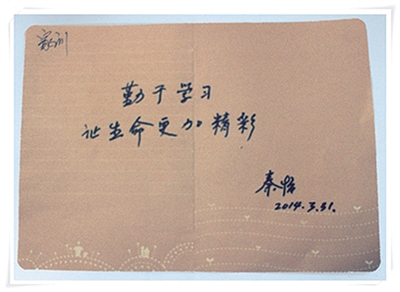 家训
勤于学习
让生命更加精彩
秦怡
2014.3.31.